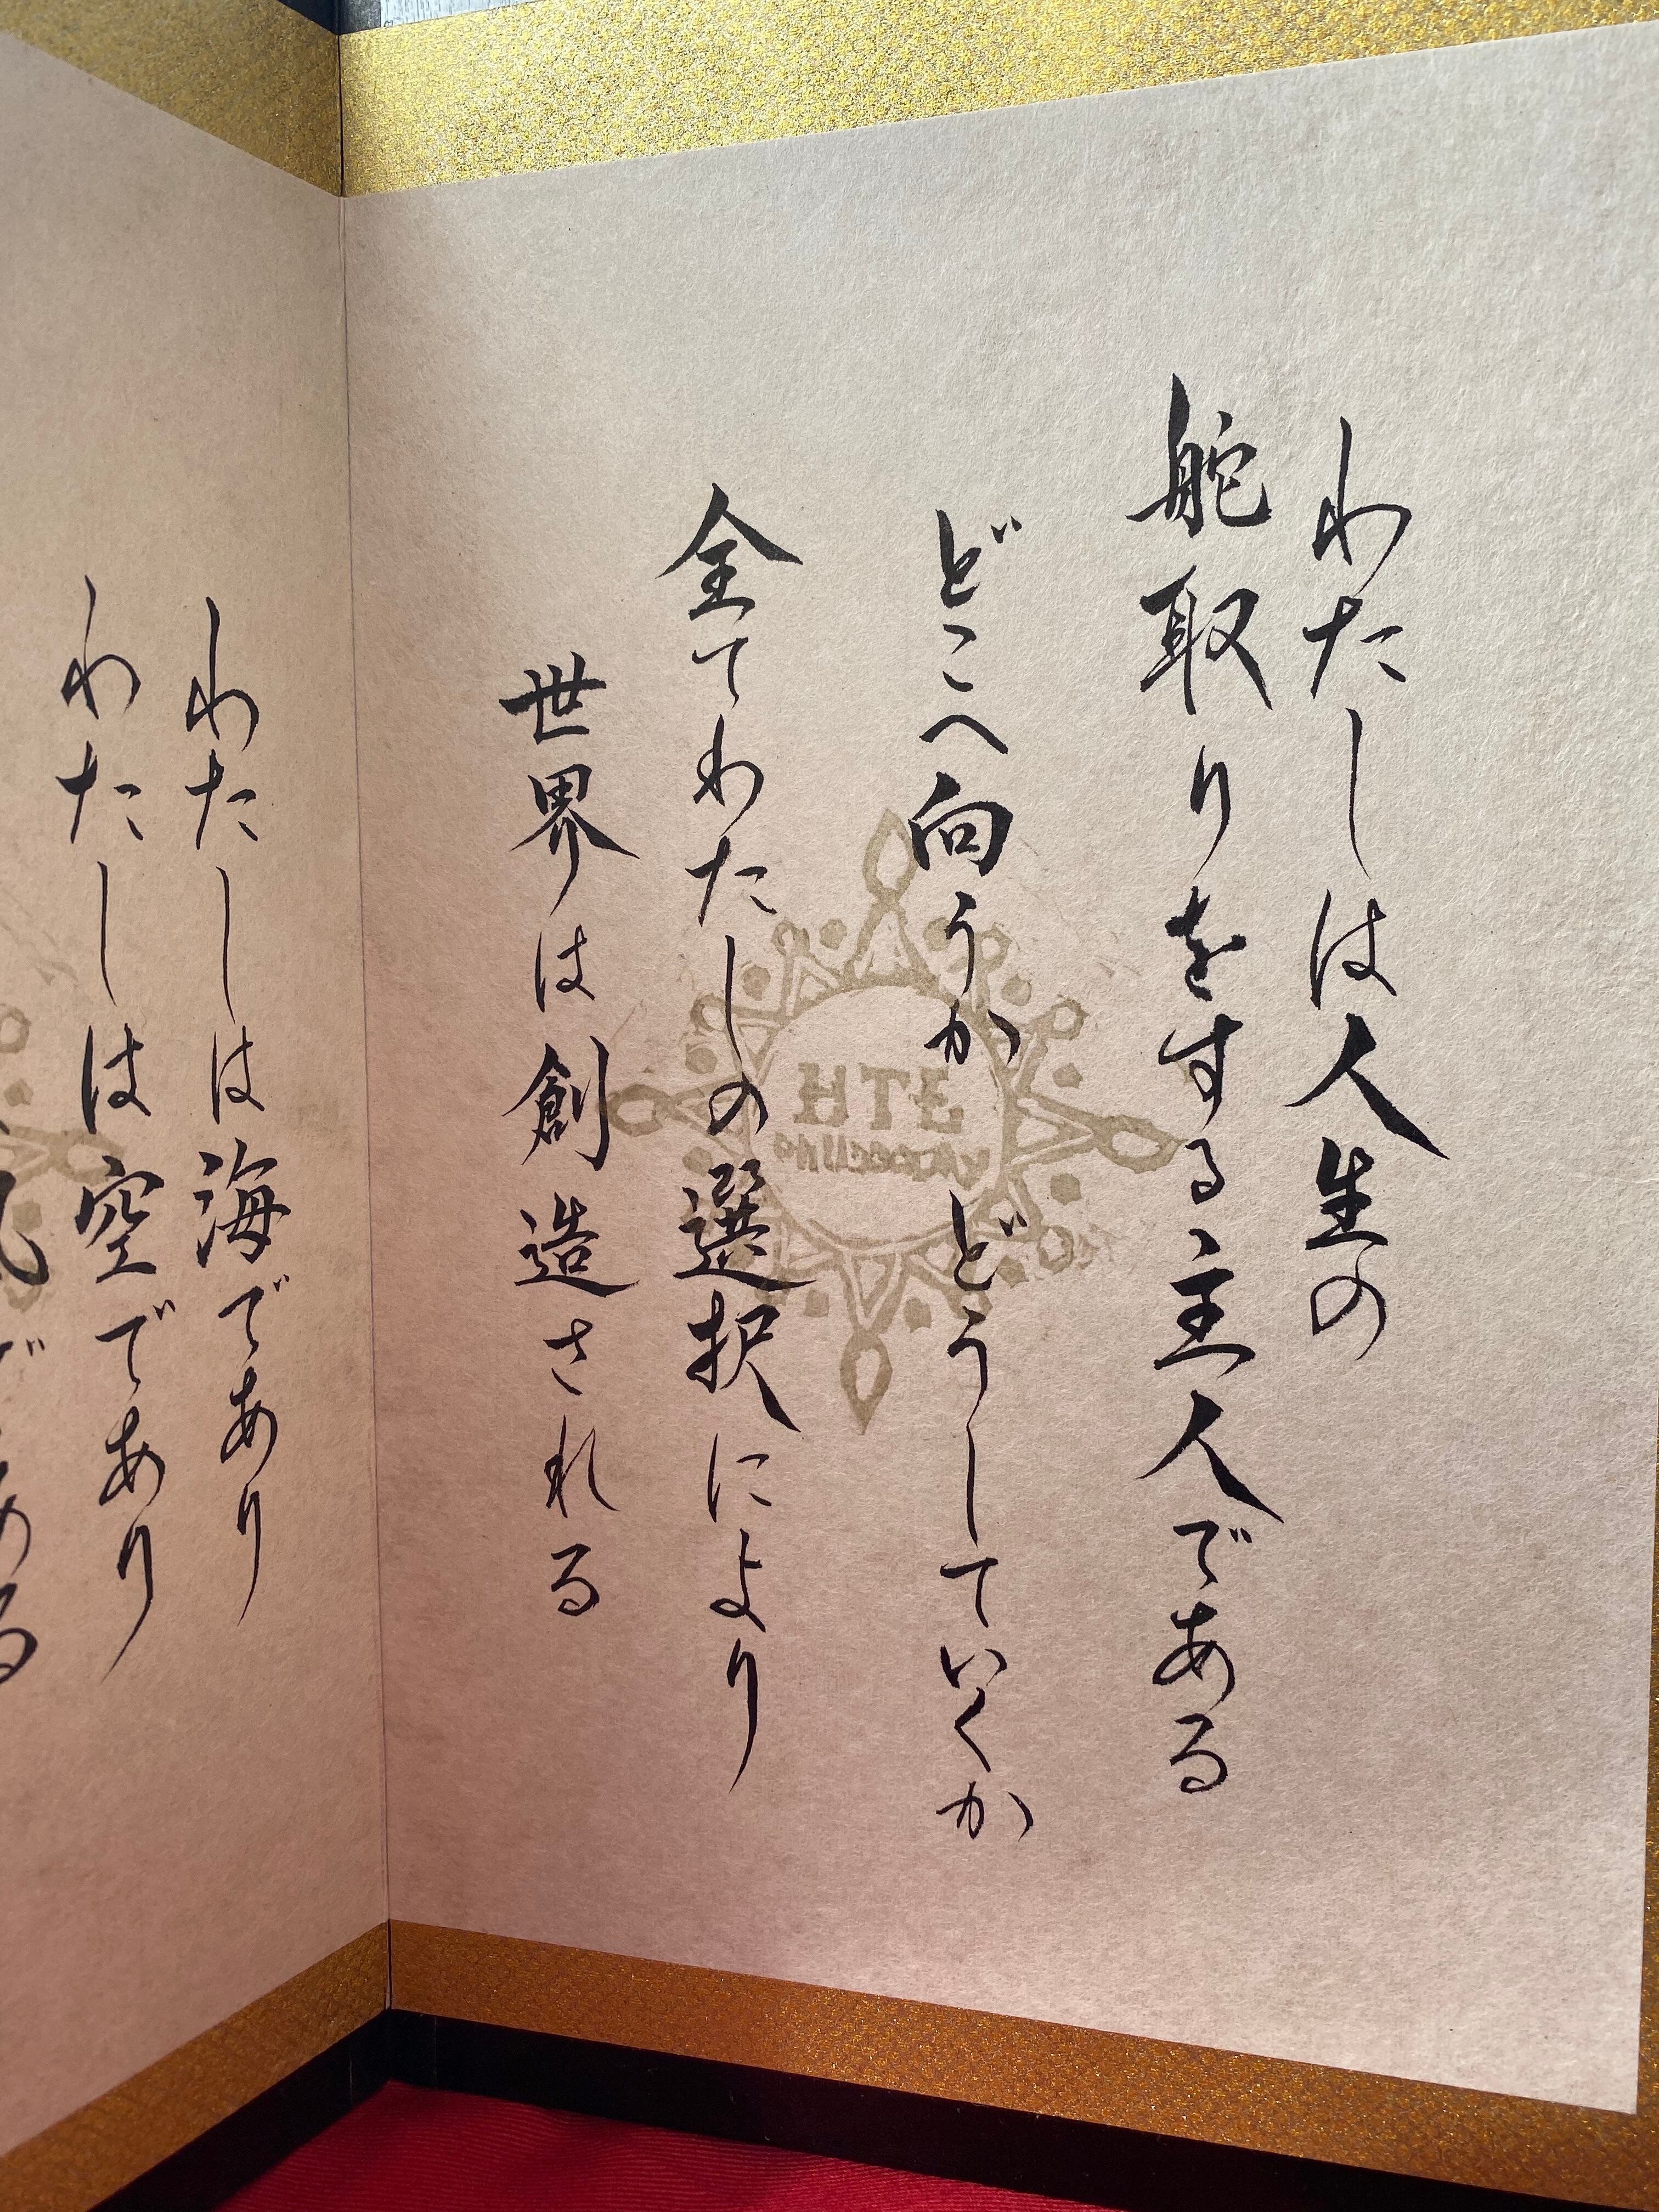 わたしは人生の
舵取りをする主人である
どこへ向うか どうしていくか
全てわたしの選択により
世界は創造される
HTE
わたしは海であり
わたしは空であり